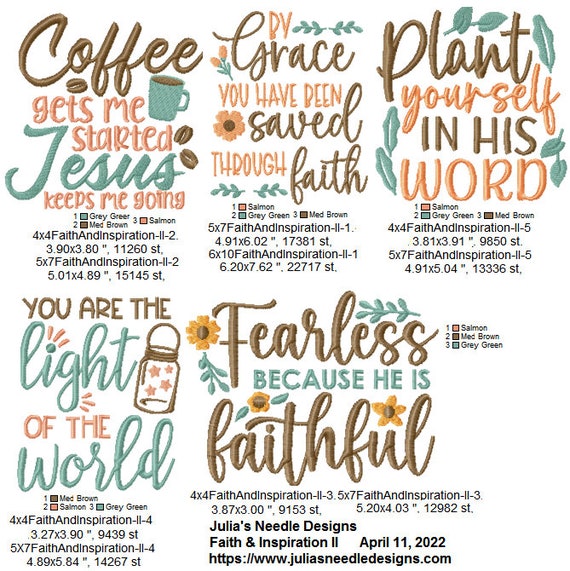 Coffee
gets me
started
Jesus
keeps me going
1 Grey Green 3 Salmon
2 Med Brown
4x4FaithAndInspiration-II-2.
3.90x3.80 ", 11260 st,
5x7FaithAndInspiration-II-2
5.01x4.89 ", 15145 st,
BY
Grace
YOU HAVE BEEN
saved
THROUGH
faith
1 Salmon
2 Grey Green 3 Med Brown
5x7FaithAndInspiration-II-1.
4.91x6.02 ", 17381 st,
6x10FaithAndInspiration-II-1
6.20x7.62 ", 22717 st,
Plant
yourself
IN HIS
WORD
1 Salmon
2 Grey Green 3 Med Brown
4x4FaithAndInspiration-II-5
3.81x3.91 ", 9850 st,
5x7FaithAndInspiration-II-5
4.91x5.04 ", 13336 st,
YOU ARE THE
light
OF THE
world
1 Med Brown
2 Salmon 3 Grey Green
4x4FaithAndInspiration-II-4
3.27x3.90 ", 9439 st
5X7FaithAndInspiration-II-4
4.89x5.84 ", 14267 st
Fearless
BECAUSE HE IS
faithful
1 Salmon
2 Med Brown
3 Grey Green
4x4FaithAndInspiration-II-3. 5x7FaithAndInspiration-II-3
3.87x3.00 ", 9153 st, 5.20x4.03 ", 12982 st,
Julia's Needle Designs
Faith & Inspiration II April 11, 2022
https://www.juliasneedledesigns.com